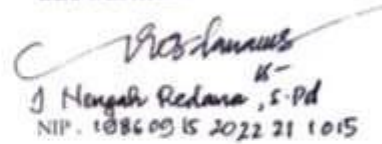 I Nengah Redana, S.Pd
NIP. 19860915 2022 21 1015